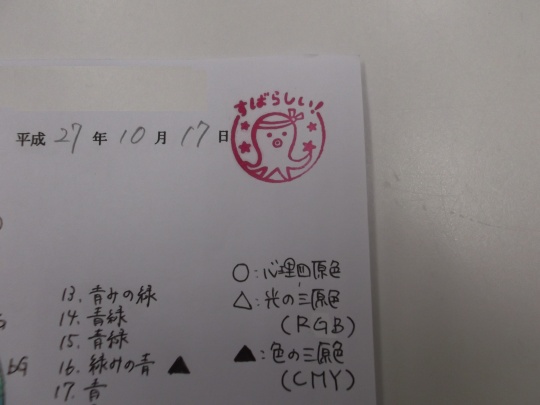 すばらしい!
平成 27 年 10 月 17 日
13. 青みの緑
14. 青緑
15. 青緑
16. 緑みの青 ▲
17. 青
bG
○:心理四原色
△:光の三原色
(RGB)
▲:色の三原色
(CMY)